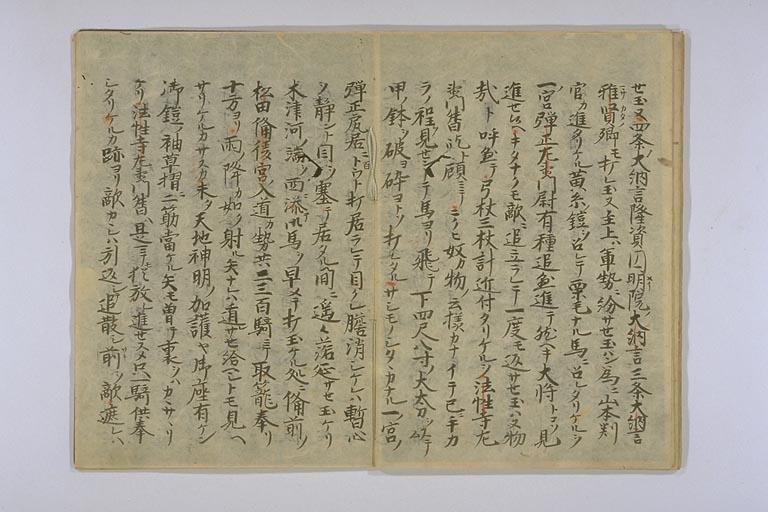 せ玉又四条大納言隆資円明院大納言三条大納言
雅賢卿モ打レ玉又主上ハ軍勢ニ紛サせ玉ハン為ニ山本判
官カ進タリケル黄糸鎧ヲ召レテ栗毛ナル馬ニ召レタリケルヲ
一宮弾正左衛門尉有種追進テ能キ大将トコソ見
進せ候ヘキタナクモ敵ニ追立ラレテ一度モ返サせ玉ハヌ物
哉ト呼テ弓杖三杖計近付タリケルヲ法性寺左
衛門督訖ト顧ミテニクヒ奴カ物ノ云様カナイテ己ニ手カ
ラノ程見せントテ馬ヨリ飛テ下四尺八寸ノ大太刀ヲ以テ
甲ノ鉢ヲ破ヨ砕ヨトソ打レタルサシモノシタヽカナル一宮ノ
弾正尻居ニトウト打居ラレテ目クレ膽消シケレハ暫心
ヲ静ント目ヲ塞テ居タル間ニ遥々落延サせ玉ケリ
木津河ノ端ヲ西ニ添ハ馬ヲ早メテ打玉ケル処ニ備前ノ
松田備後宮入道カ勢共二三百騎ニテ取篭奉リ
十方ヨリ雨ノ降カ如ク射ル矢ナレハ遁サせ給ヘシトモ見ヘ
サリケルカサスカ末ノ天地神明ノ加護ヤ御座有ケン
御鎧ノ袖草摺ニ二筋當ケル矢モ曽テ裏ヲハカヽサリ
ケリ法性寺左衛門督是マテモ猶放レ進せス只一騎供奉
シタリケルカ跡ヨリ敵カヽレハ引返シ追散シ前ヲ敵遮レハ